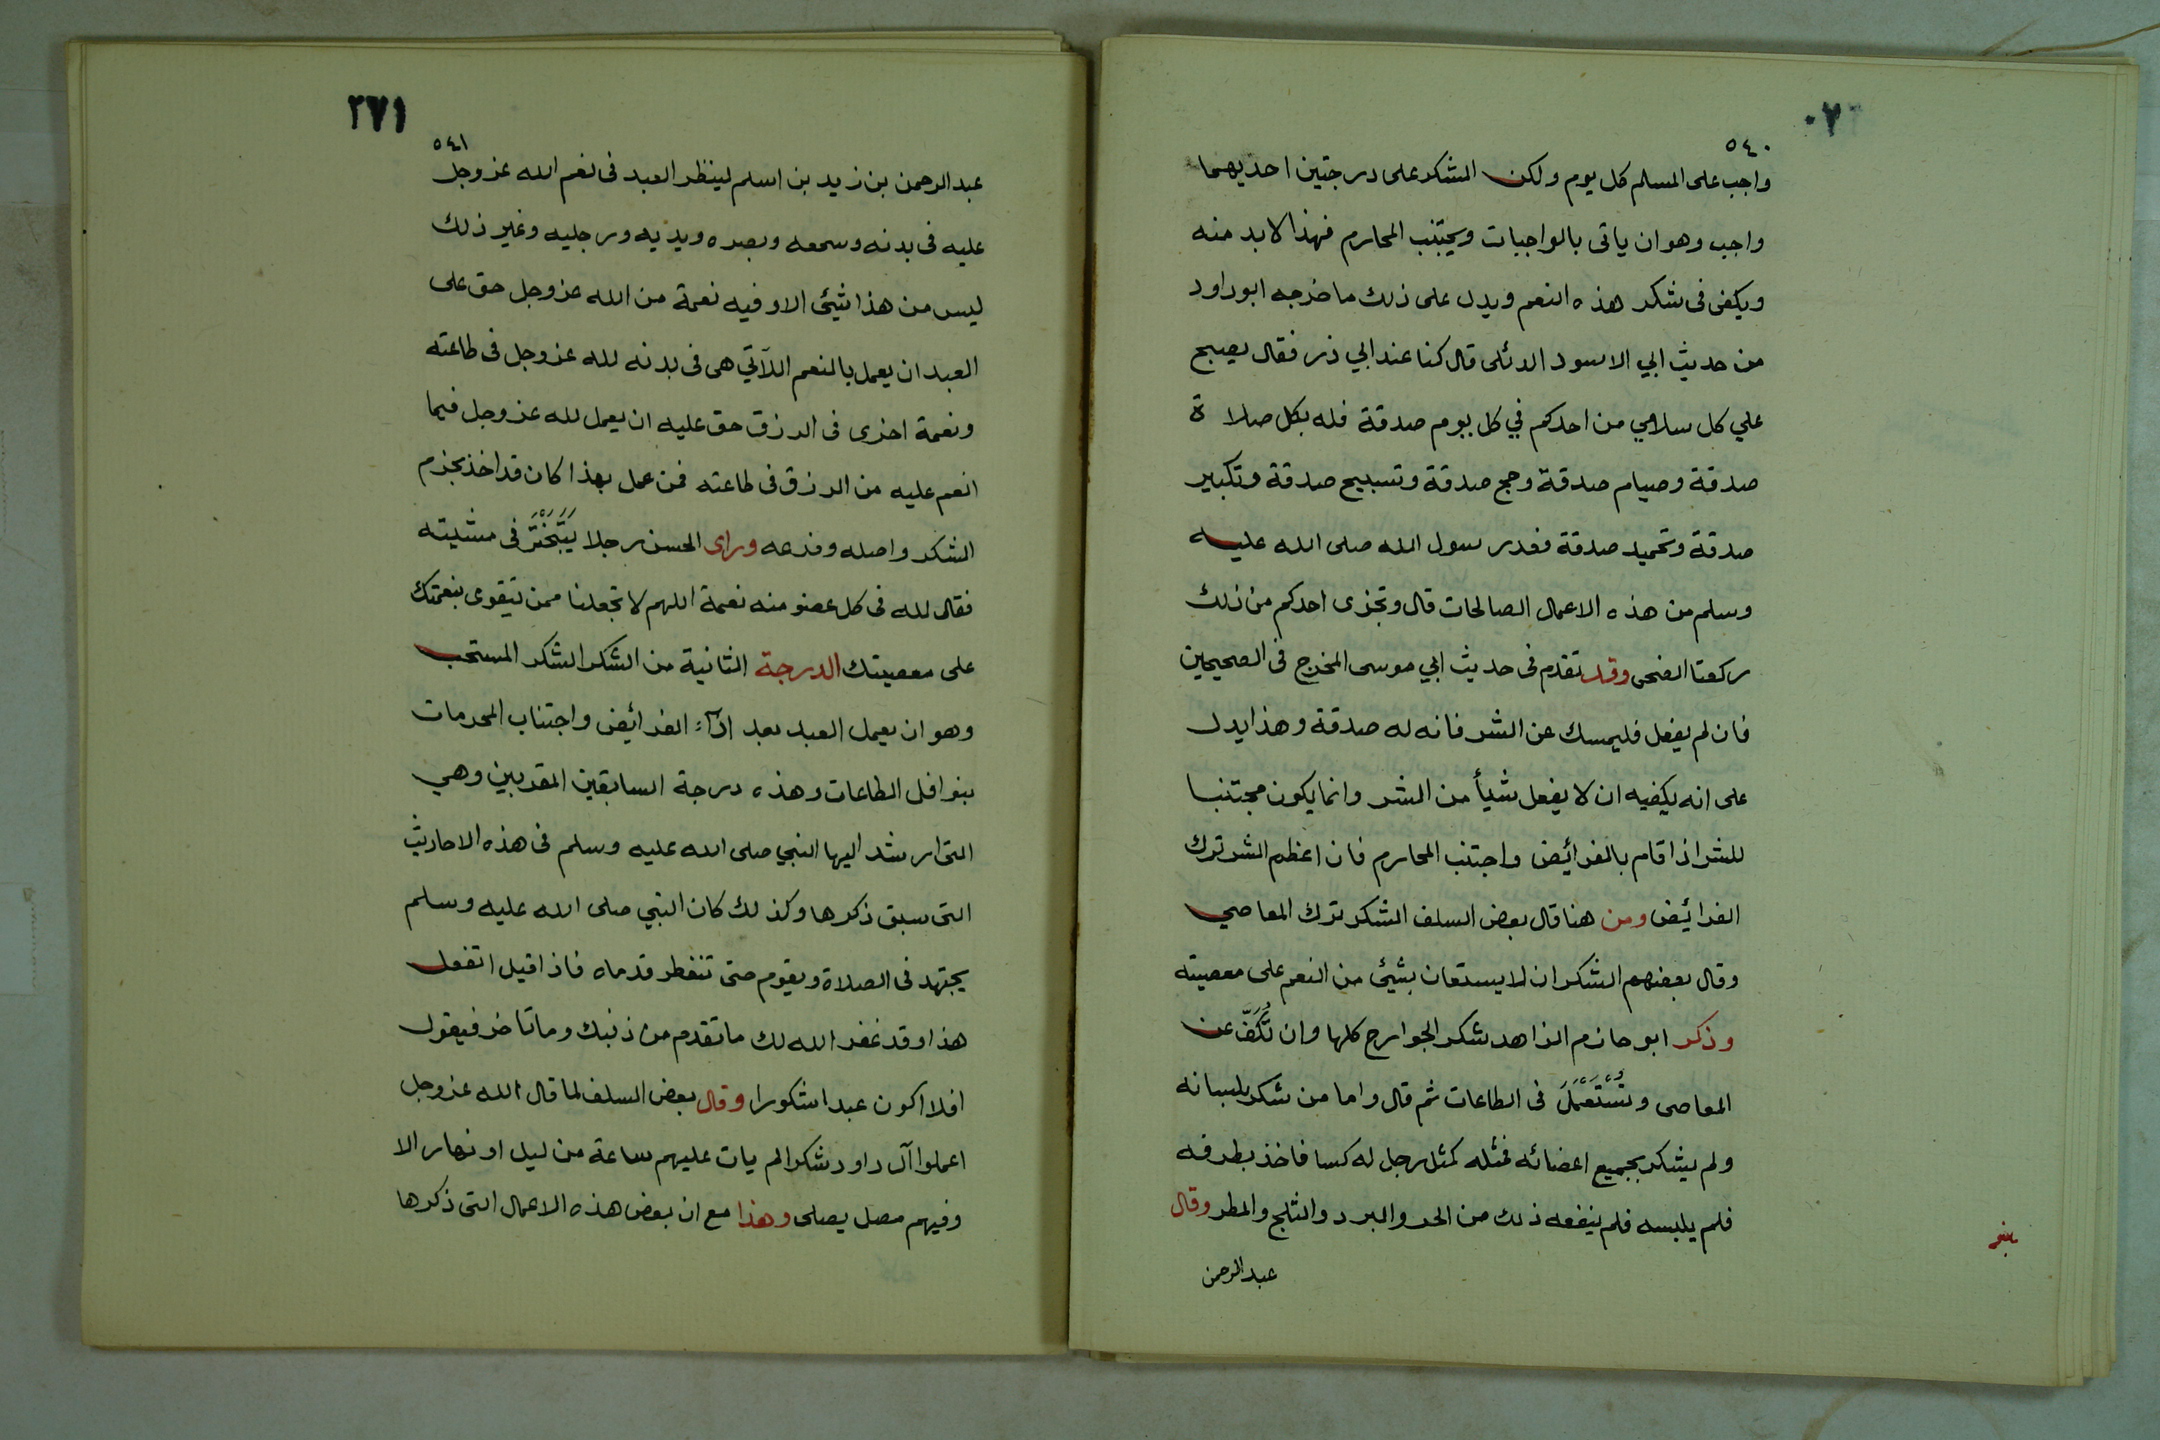 ٥٤٠
واجب على المسلم كل يوم ولكن الشكر على درجتين احديهما
واجب وهو ان ياتى بالواجبات ويجتنب المحارم فهذا لا بد منه
ويكفى فى شكر هذه النعم ويدل على ذلك ما خرجه ابوداود
من حديث ابي الاسود الدئلى قال كنا عند ابي ذر فقال يصبح
علي كل سلامي من احدكم في كل يوم صدقة فله بكل صلاة
صدقة وصيام صدقة وحج صدقة وتسبيح صدقة وتكبير
صدقة وتحميد صدقة فعد رسول الله صلى الله عليه
وسلم من هذه الاعمال الصالحات قال وتجزى احدكم من ذلك
ركعتا الضحى وقد تقدم فى حديث ابي موسى المخرج فى الصحيحين
فان لم يفعل فليمسك عن الشر فانه له صدقة وهذا يدل
على انه يكفيه ان لا يفعل شيأ من الشر وانما يكون مجتنبا
للشر اذا قام بالفرائض واجتنب المحارم فان اعظم الشر ترك
الفرائض ومن هنا قال بعض السلف الشكر ترك المعاصي
وقال بعضهم الشكر ان لا يستعان بشيئ من النعم على معصيته
وذكر ابو حازم الزاهد شكر الجوارح كلها وان تُكَفَّ عن
المعاصى وتُسْتَعْمَلَ فى الطاعات ثم قال واما من شكر بلسانه
ولم يشكر بجميع اعضائه فمثله كمثل رجل له كسا فاخذ بطرفه
فلم يلبسه فلم ينفعه ذلك من الحر والبرد والثلج والمطر وقال
عبد الرحمن
٢٧١
٥٤١
عبد الرحمن بن زيد بن اسلم لينظر العبد فى نعم الله عز وجل
عليه فى بدنه وسمعه وبصره ويديه ورجليه وغير ذلك
ليس من هذا شيئ الا وفيه نعمة من الله عز وجل حق على
العبد ان يعمل بالنعم اللآتي هى فى بدنه لله عز وجل فى طاعته
ونعمة اخرى فى الرزق حق عليه ان يعمل لله عز وجل فيما
انعم عليه من الرزق فى طاعته فمن عمل بهذا كان قد اخذ بجزم
الشكر واصله وفرعه وراى الحسن رجلا يَتَبَخْتَرَ فى مشيته
فقال لله فى كل عضو منه نعمة اللهم لا تجعلنا ممن يتقوى بنعمتك
على معصيتك الدرجة الثانية من الشكر الشكر المستحب
وهو ان يعمل العبد بعد ادآء الفرائض واجتناب المحرمات
بنوافل الطاعات وهذه درجة السابقين المقربين وهي
التى ارشد اليها النبي صلى الله عليه وسلم فى هذه الاحاديث
التى سبق ذكرها وكذلك كان النبي صلى الله عليه وسلم
يجتهد فى الصلاة ويقوم حتى تنفطر قدماه فاذا قيل اتفعل
هذا وقد غفر الله لك ما تقدم من ذنبك وما تاخر فيقول
افلا اكون عبدا شكورا وقال بعض السلف لما قال الله عز وجل
اعملوا آل داود شكرا لم يات عليهم ساعة من ليل او نهار الا
وفيهم مصل يصلى وهذا مع ان بعض هذه الاعمال التى ذكرها